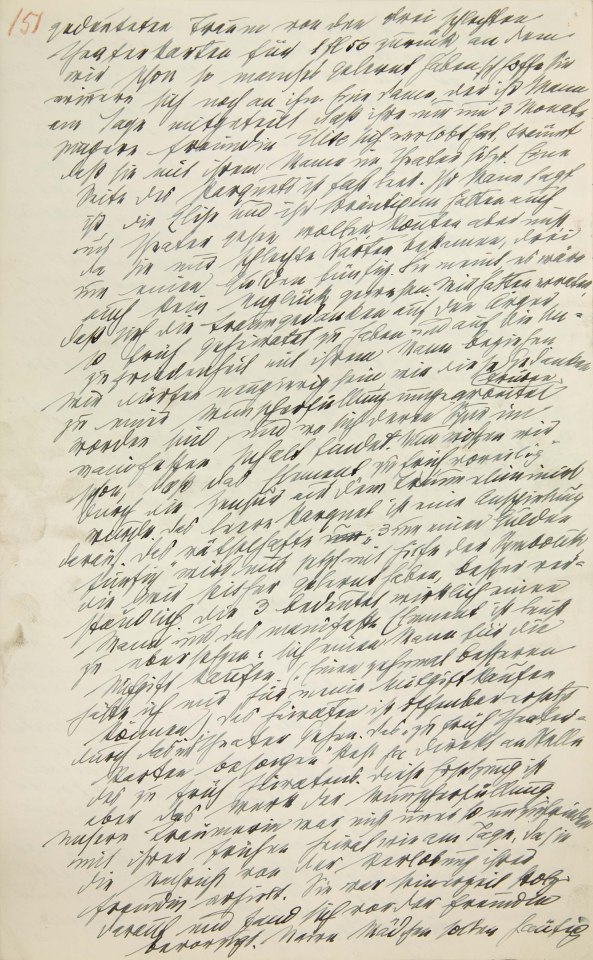 151
gedeuteten Traum von den drei schlechten
Theaterkarten für 1 fl 50 zurück, an dem
wir schon so manches gelernt haben. Ich hoffe Sie
erinnern sich noch an ihn. Eine Dame, der ihr Mann
am Tage mitgeteilt daß ihre nur um 3 Monate
jüngere Freundin Elise sich verlobt hat träumt
daß sie mit ihrem Manne im Theater sitzt. Eine
Seite des Parquets ist fast leer. Ihr Mann sagt
ihr die Elise und ihr Bräutigam hätten auch
ins Theater gehen wollen konnten aber nicht
da sie nur schlechte Karten bekamen, drei
um einen Gulden fünfzig. Sie meint es wäre
auch kein Unglück gewesen. Wir hatten erraten,
daß sich die Traumgedanken auf den Ärger
so früh geheiratet zu haben und auf die Un-
zufriedenheit mit ihrem Mann beziehen.
Wir dürfen neugierig sein wie diese trüben Gedanken
zu einer Wunscherfüllung umgearbeitet
worden sind, und wo sich deren Spur im
manifesten Inhalt findet. Nun wissen wir
schon, daß das Element „zu früh, voreilig“
durch die Zensur aus dem Traum eliminiert
wurde. Das leere Parquet ist eine Anspielung
darauf. Das rätselhafte „3 um einen Gulden
fünfzig“ wird uns jetzt mit Hilfe der Symbolik
die wir seither gelernt haben, besser ver-
ständlich. Die 3 bedeutet wirklich einen
Mann und das manifeste Element ist leicht
zu übersetzen: sich einen Mann für die
Mitgift kaufen. („Einen zehnmal besseren
hätte ich mir für meine Mitgift kaufen
können“) Das Heiraten ist offenbar ersetzt
durch das ins Theater gehen. Das „zu früh Theater-
karten besorgen“ steht ja direkt an Stelle
des zu früh Heiratens. Diese Ersetzung ist
aber das Werk der Wunscherfüllung.
Unsere Träumerin war nicht immer so unzufrieden
mit ihrer frühen Heirat wie am Tage, da sie
die Nachricht von der Verlobung ihrer
Freundin erhielt. Sie war seinerzeit stolz
darauf und fand sich vor der Freundin
bevorzugt. Naive Mädchen sollen häufig